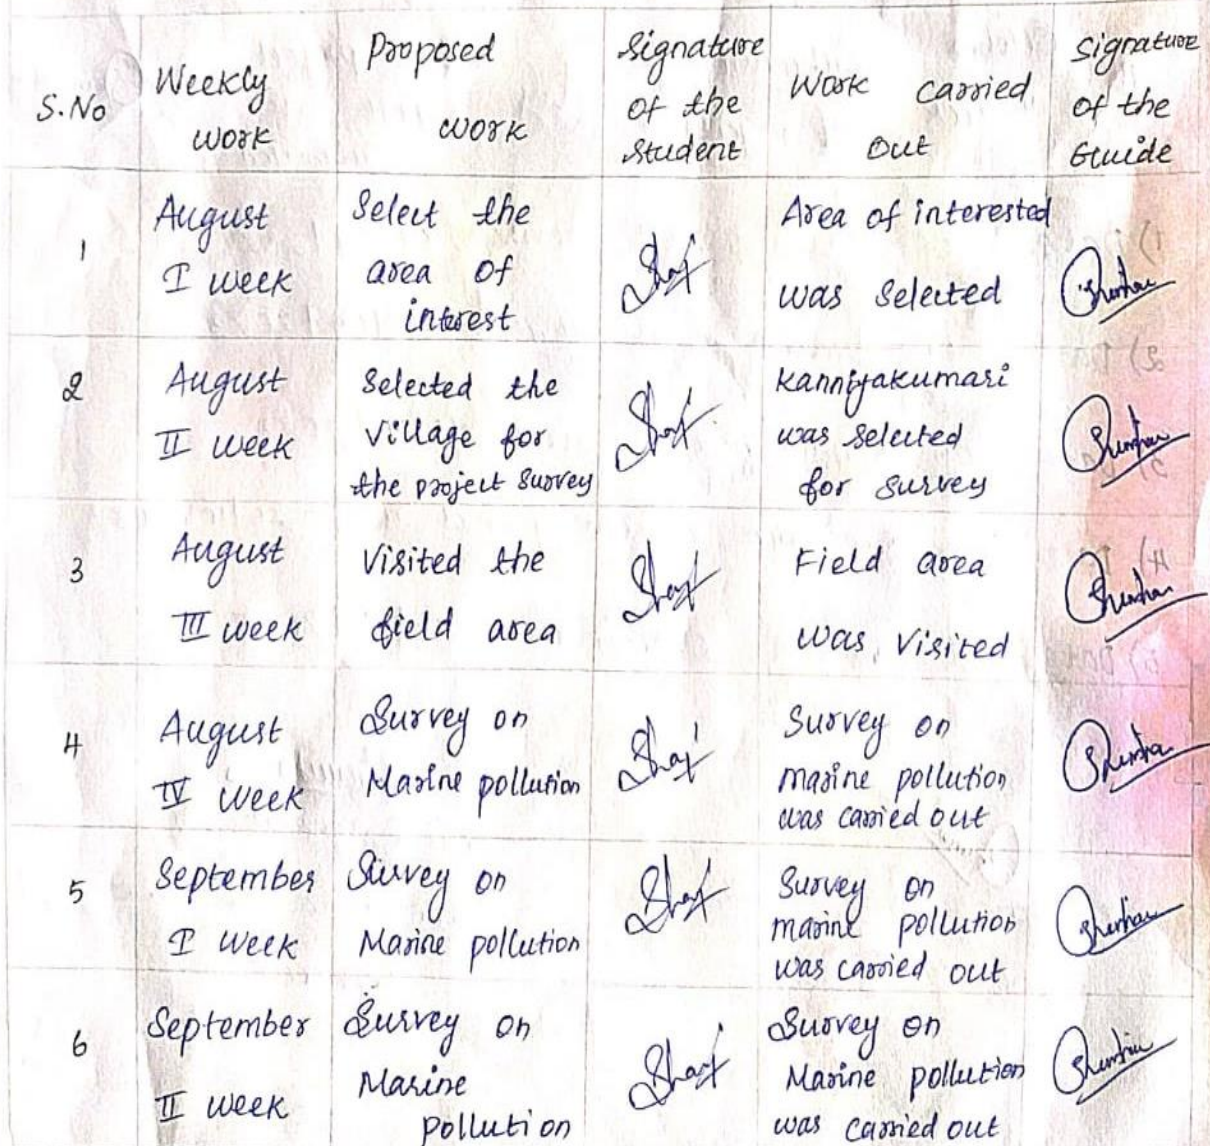 S.No
Weekly
work
Proposed
work
Signature
of the
Student
Work carried
Out
Signature
of the
Guide
1
August
I week
Select the
area of
interest
Area of interested
was selected
2
August
II week
Selected the
Village for
the project survey
Kanniyakumari
was selected
for survey
3
August
III week
Visited the
field area
Field area
was visited
4
August
IV week
Survey on
Marine pollution
Survey on
marine pollution
was carried out
5
September
I week
Survey on
Marine pollution
Survey on
marine pollution
was carried out
6
September
II week
Survey on
Marine
pollution
Survey on
Marine pollution
was carried out